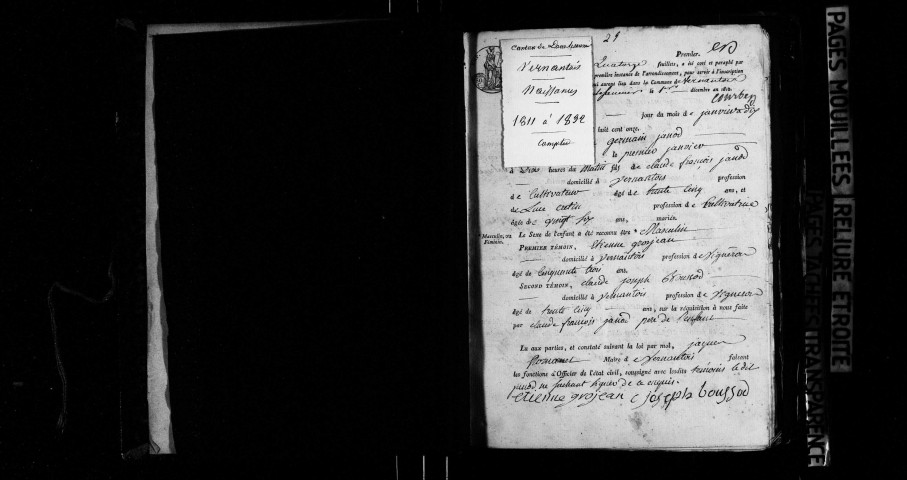 29
Premier.
Canton de
Vernantois
Naissances
1811 à 1892
Complet
Quatorze feuillets, a été coté et paraphé par
première instance de l'arrondissement, pour servir à l'inscription
qui auront lieu dans la Commune de Vernantois
le 1er décembre an 1810.
jour du mois de janvier à dix
huit cent onze.
germain janod
le premier janvier
à trois heures du matin fils de claude françois janod
domicilié à Vernantois profession
de Cultivateur âgé de trente cinq ans, et
de Luce profession de Cultivatrice
âgée de vingt six ans, mariés.
Masculin, ou Féminin.
Le Sexe de l'enfant a été reconnu être Masculin
PREMIER TÉMOIN, Etienne grosjean
domicilié à Vernantois profession de Vigneron
âgé de Cinquante trois ans.
SECOND TÉMOIN, claude joseph
domicilié à Vernantois profession de Vigneron
âgé de trente cinq ans, sur la réquisition à nous faite
par claude françois janod père de l'enfant
Lu aux parties, et constaté suivant la loi par moi, jaques
Maire de Vernantois faisant
les fonctions d'Officier de l'état civil, soussigné avec lesdits témoins le dit
janod ne sachant signer de ce enquis.
etienne grojean c joseph boussod
PAGES MOUILLEES RELIURE ETROITE
PAGES TACHEES TRANSPARENCE